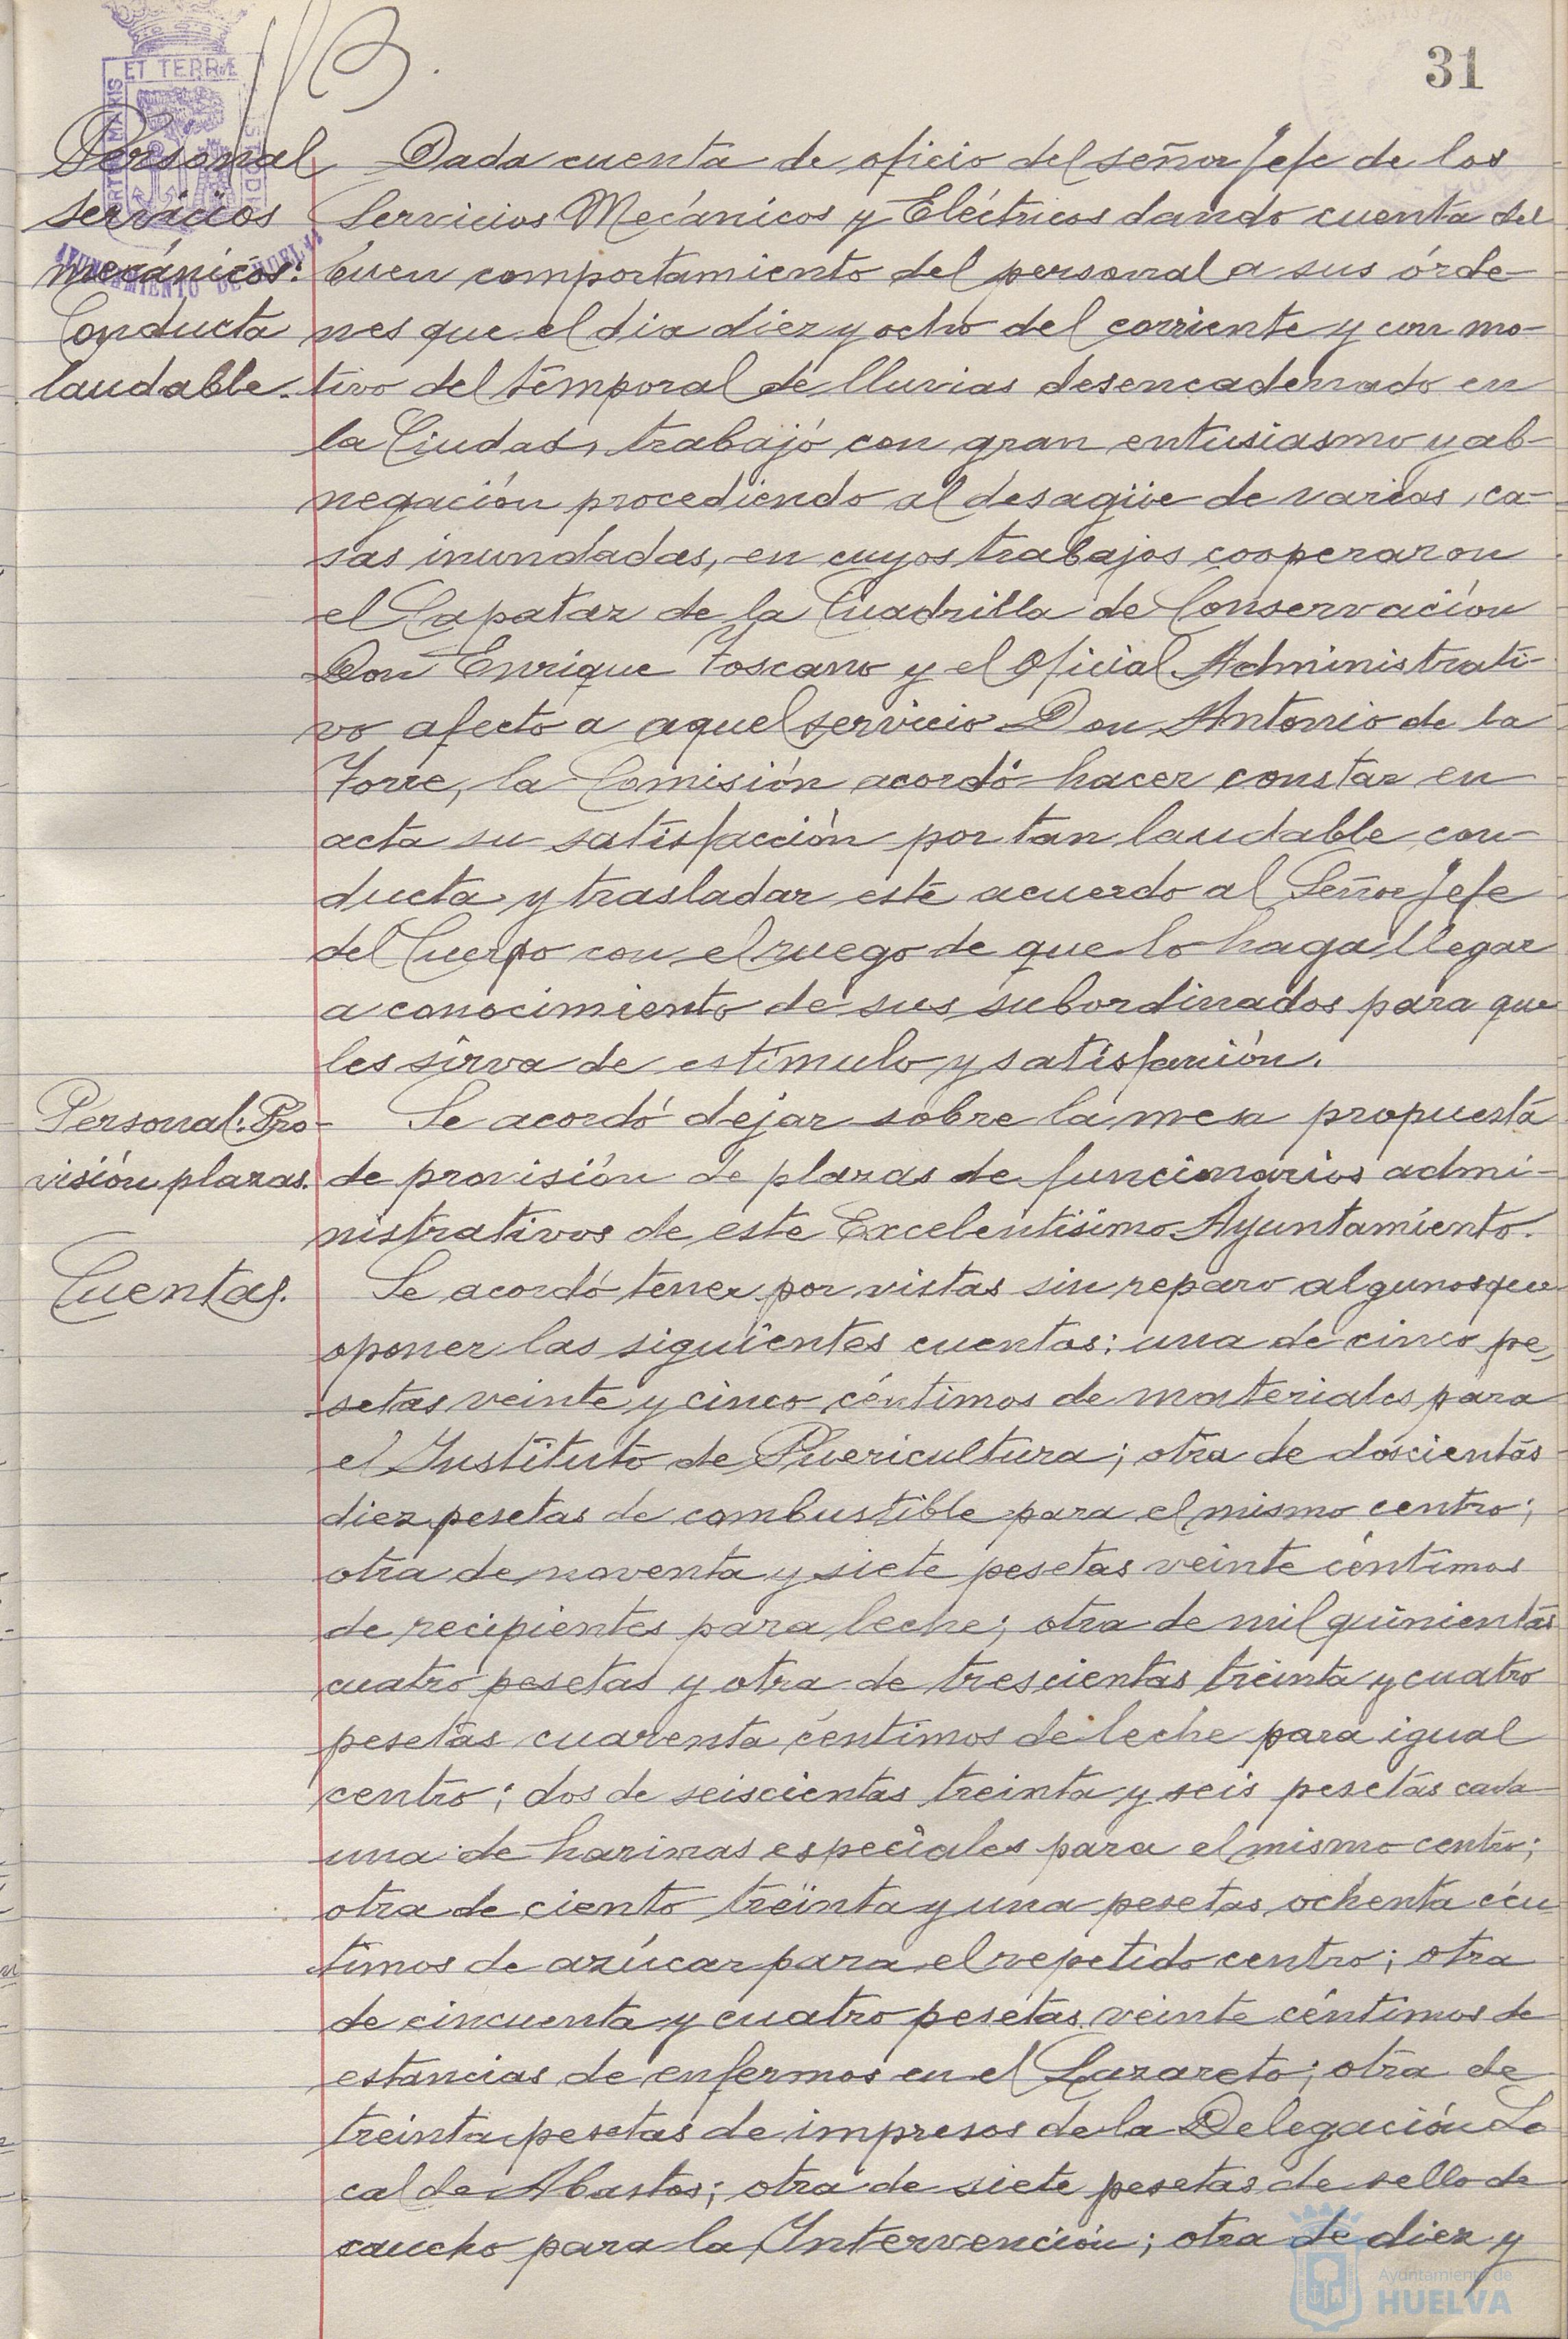 31
ET TERRÆ
Personal
servicios
mecánicos:
Conducta
laudable.
Dada cuenta de oficio del señor Jefe de los
Servicios Mecánicos y Eléctricos dando cuenta del
buen comportamiento del personal a sus órde-
nes que el dia diez y ocho del corriente y con mo-
tivo del temporal de lluvias desencadenado en
la Ciudad, trabajó con gran entusiasmo y ab-
negación procediendo al desagüe de varias ca-
sas inundadas, en cuyos trabajos cooperaron
el Capataz de la Cuadrilla de Conservación
Don Enrique Toscano y el Oficial Administrati-
vo afecto a aquel servicio Don Antonio de la
Torre, la Comisión acordó hacer constar en
acta su satisfacción por tan laudable con-
ducta y trasladar este acuerdo al Señor Jefe
del Cuerpo con el ruego de que lo haga llegar
a conocimiento de sus subordinados para que
les sirva de estímulo y satisfación.
Personal: Pro-
visión plazas.
Se acordó dejar sobre la mesa propuesta
de provisión de plazas de funcionarios admi-
nistrativos de este Excelentísimo Ayuntamiento.
Cuentas.
Se acordó tener por vistas sin reparo algunos que
oponer las siguientes cuentas: una de cinco pe-
setas veinte y cinco céntimos de materiales para
el Instituto de Puericultura; otra de doscientas
diez pesetas de combustible para el mismo centro;
otra de noventa y siete pesetas veinte céntimos
de recipientes para leche; otra de mil quinientas
cuatro pesetas y otra de trescientas treinta y cuatro
pesetas cuarenta céntimos de leche para igual
centro; dos de seiscientas treinta y seis pesetas cada
una de harinas especiales para el mismo centro;
otra de ciento treinta y una pesetas ochenta cén
timos de azúcar para el repetido centro; otra
de cincuenta y cuatro pesetas veinte céntimos de
estancias de enfermos en el Lazareto; otra de
treinta pesetas de impresos de la Delegación Lo
cal de Abastos; otra de siete pesetas de sello de
caucho para la Intervención; otra de diez y
Ayuntamiento de
HUELVA